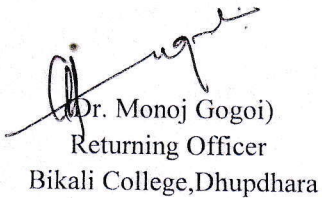 (Dr. Monoj Gogoi)
Returning Officer
Bikali College,Dhupdhara